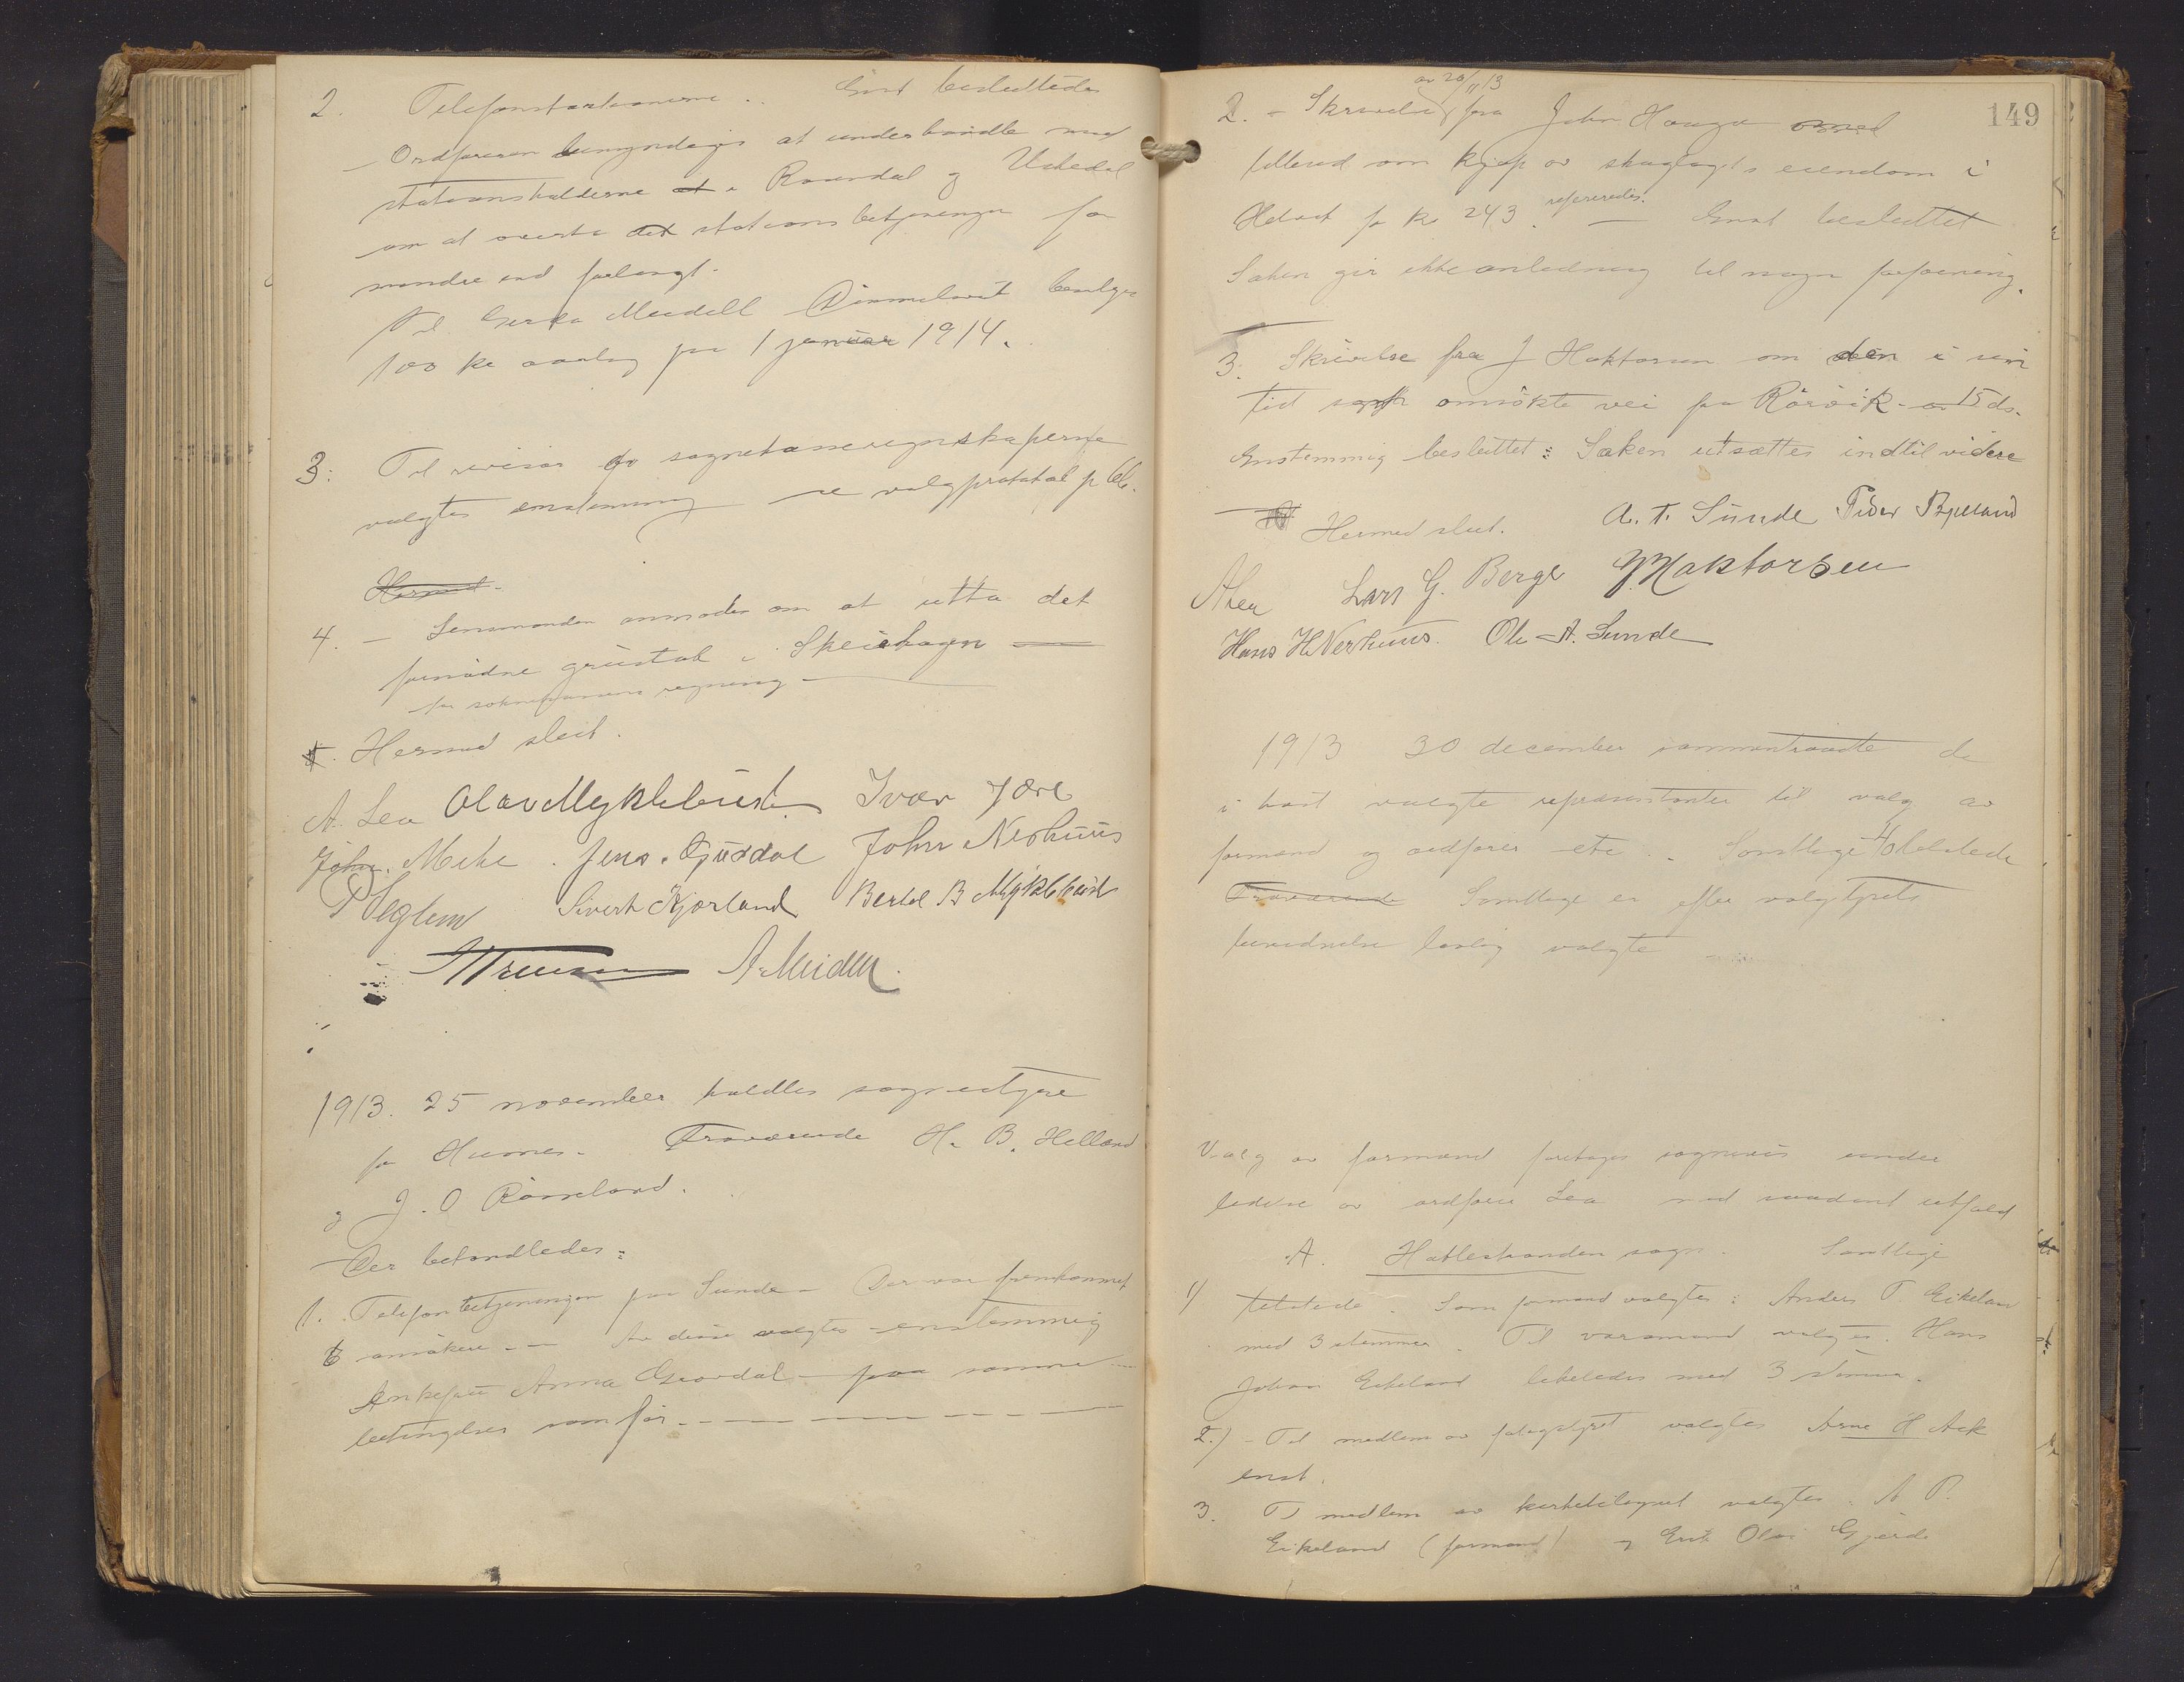 2. Telefonstationerne .. Enst besluttedes
— Ordføreren bemyndiges at underhandle med
stationsholderne at i Rosendal og Uskedal
om at overta det stationsbetjeningen for
mindre end forlangt.
Til Gerda Meidell Dimmelsvik bevilges
100 kr aarlig fra 1 januar 1914.
3: Til revisor for sognekasseregnskaperne
valgtes enstemmig se valgprotokol p
Hermed.
4. — Lensmanden anmodes om at utta det
fornødne grustak i Skeishagen —
for sognekassens regning —
Hermed slut.
A. Lea Olav Myklebust Ivar
John Mehe . Jens . Guddal John Nerhuus
P Seglem Sivert Kjærland Bertel B Myklebust
A. Meidell.
1913. 25 november holdtes sognestyre
på Husnes. Fraværende H. B. Helland
og J. O Røsseland.
Der behandledes:
1. Telefonbetjeningen paa Sunde — Der var fremkommet
6 ansøkere - — Av disse valgtes enstemmig
Enkefru Anna Guddal — paa samme —
betingelser som før. — — — —
149
2. — Skrivelse av 20/11 13 fra John Hauge
tilbud om kjøp av skoglagts eiendom i
for kr 243. refereredes. — Enst besluttet
Saken gir ikke anledning til nogen føining.
3. Skrivelse fra J Haktorsen om den i sin
tid omsøkte vei fra Rørvik - 15 ds.
Enstemmig besluttet: Saken utsættes indtil videre
Hermed slut. A. T. Sunde Peder Bjelland
ALea Lars G. Berge J Haktorsen
Hans H. Nerhuus. Ole A. Sunde
1913 30 december sammentraadte de
i høst valgte repræsentanter til valg av
formænd og ordfører etc .. Samtlige tilstede
Fraværende Samtlige er efter valgstyrets
kjendelse lovlig valgte —
Valg av formænd foretages sognevis under
ledelse av ordfører Lea med saadant utfald
A. Hatlestranden sogn. Samtlige
1) tilstede. Som formand valgtes: Anders T. Eikeland
med 3 stemmer. Til varamand valgtes. Hans
Johan Eikeland likeledes med 3 stemmer.
2.) — Til medlem av valgtes Arne H Aek
enst.
3. Til medlem av valgtes. A T.
Eikeland (formand) og Erik Olai Gjerde